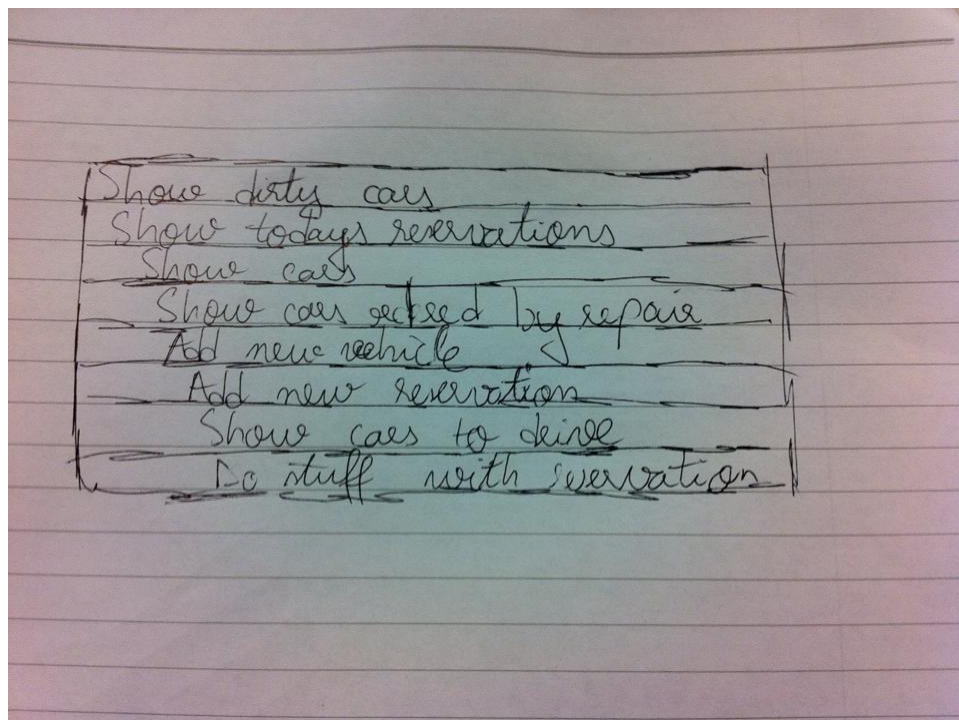 Show dirty cars
Show todays reservations
Show cars
Show cars by repair
Add new vehicle
Add new reservation
Show cars to
Do stuff with